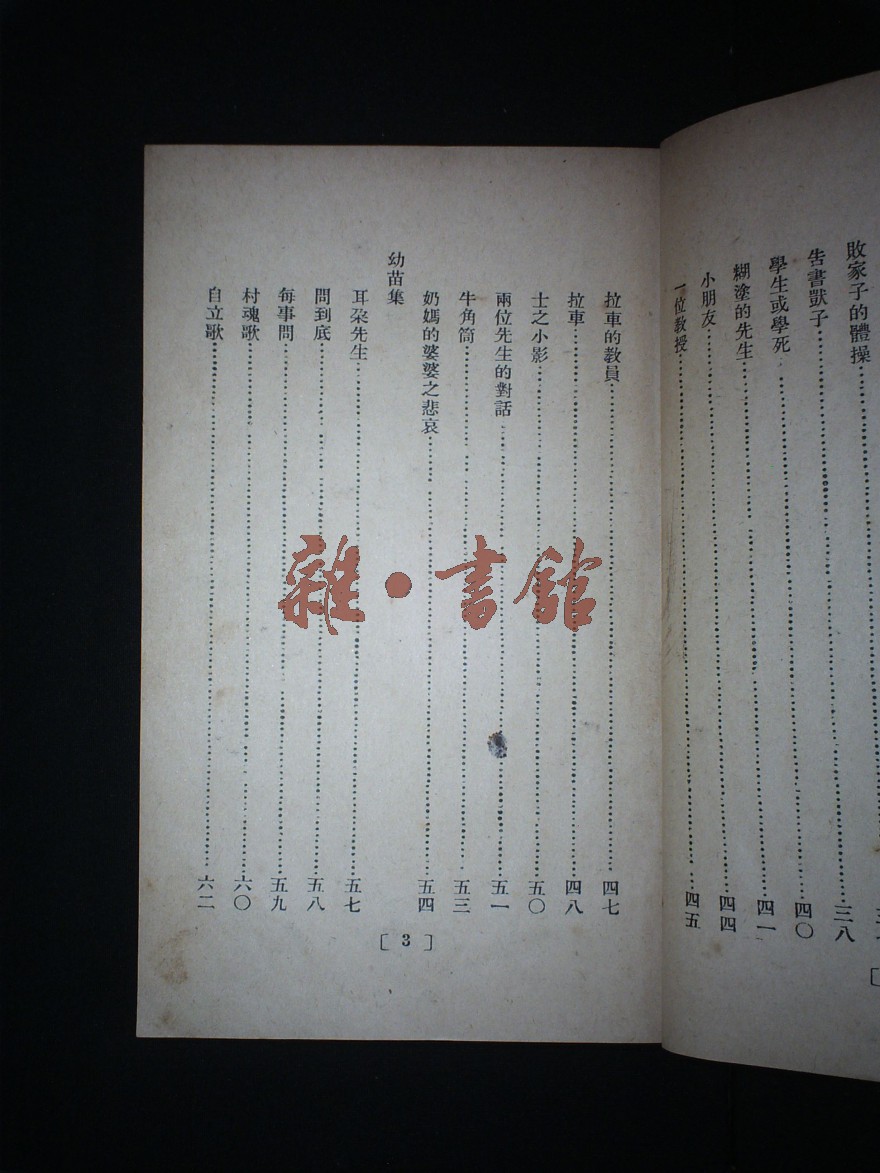 敗家子的體操
告書獃子……三八
學生或學死……四〇
糊塗的先生……四一
小朋友……四四
一位教授……四五
拉車的教員……四七
拉車……四八
士之小影……五〇
兩位先生的對話……五一
牛角筒……五三
奶媽的婆婆之悲哀……五四
幼苗集
耳朶先生……五七
問到底……五八
每事問……五九
村魂歌……六〇
自立歌……六二
[ 3 ]
雜·書館